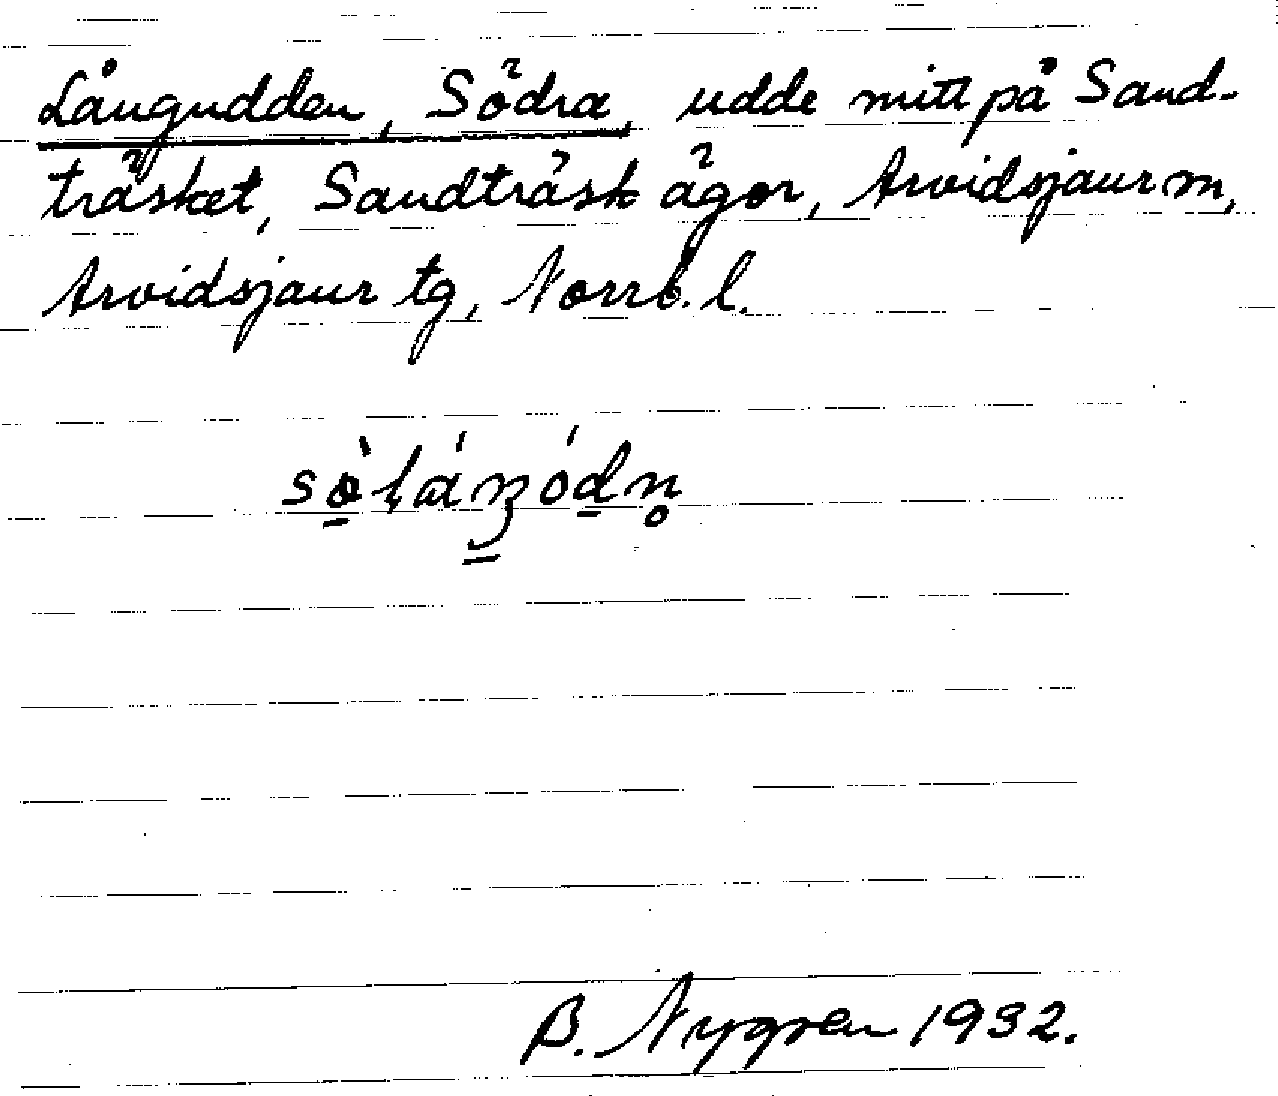 Långudden, Södra, udde mitt på Sand-
träsket, Sandträsk ägor, Arvidsjaur m,
Arvidsjaur tg, Norrb. l.
B. Nygren 1932.